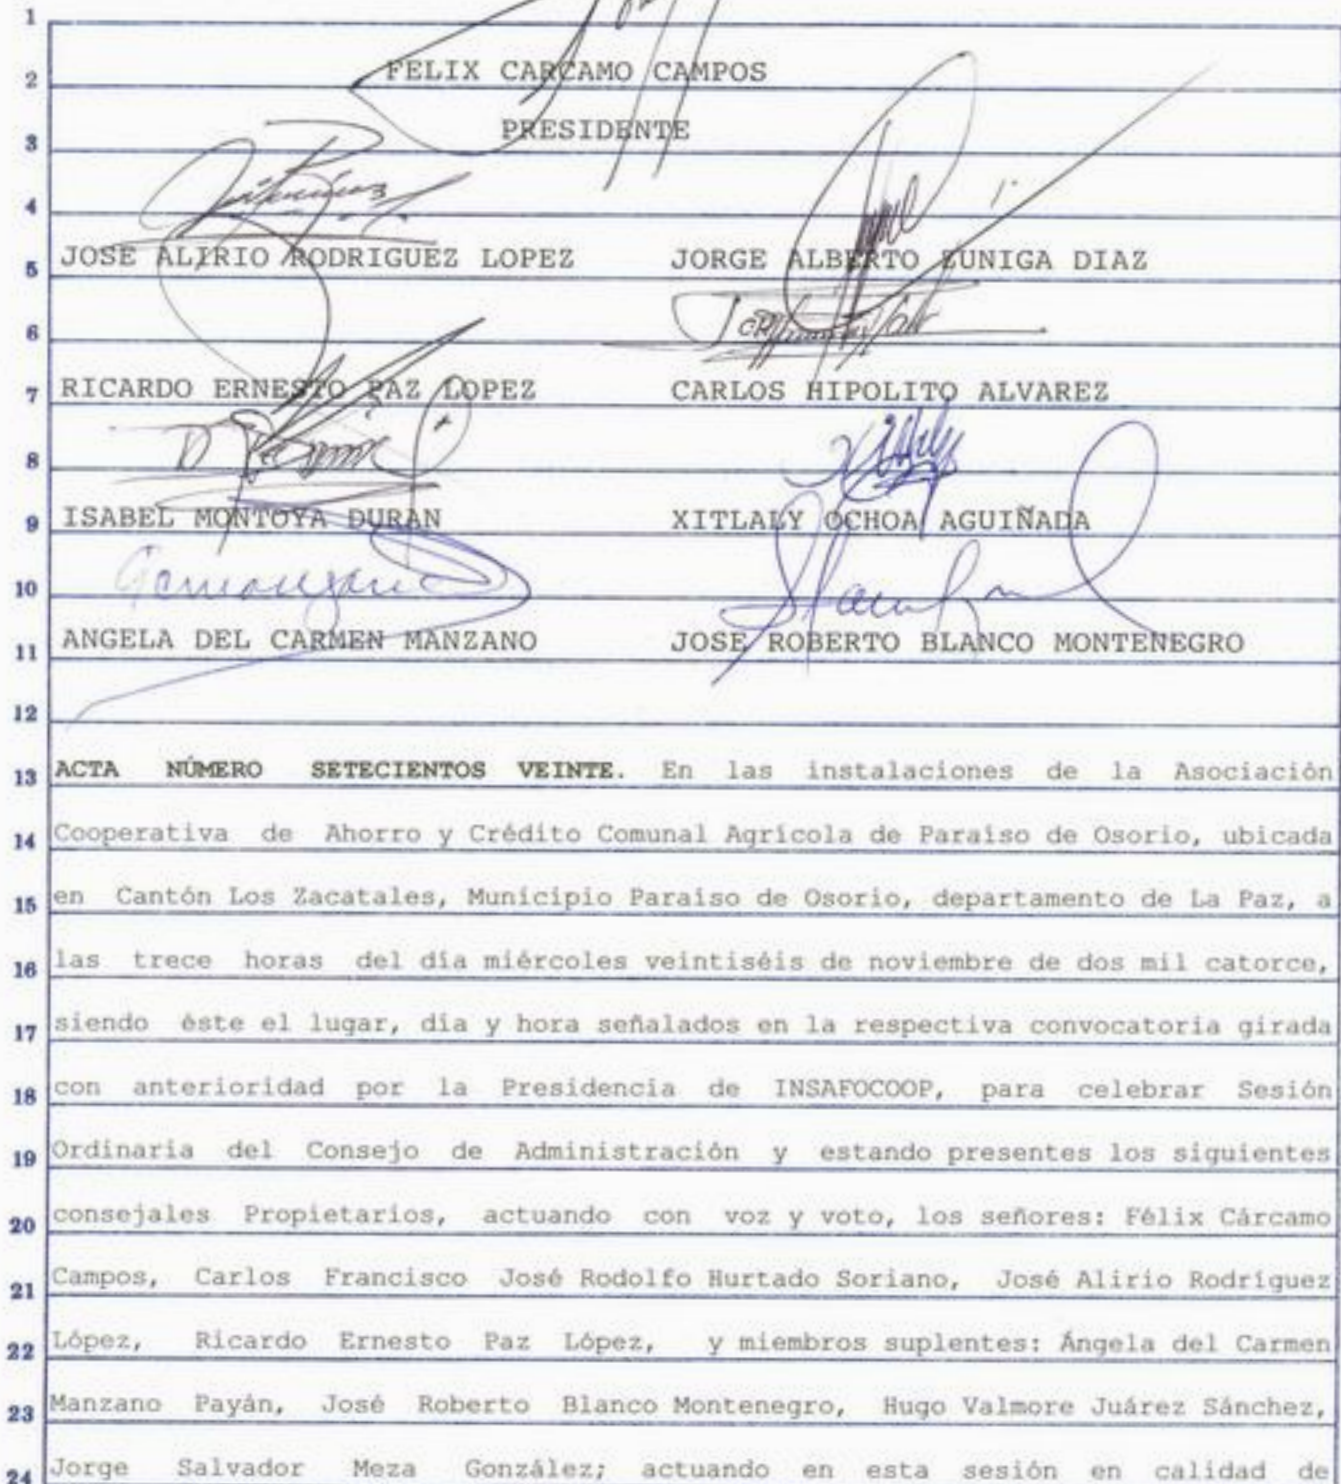 1
FELIX CARCAMO CAMPOS
2
PRESIDENTE
3
4
JOSE ALIRIO RODRIGUEZ LOPEZ JORGE ALBERTO ZUNIGA DIAZ
5
6
RICARDO ERNESTO PAZ LOPEZ CARLOS HIPOLITO ALVAREZ
7
8
ISABEL MONTOYA DURAN XITLALY OCHOA AGUIÑADA
9
10
ANGELA DEL CARMEN MANZANO JOSE ROBERTO BLANCO MONTENEGRO
11
12
13 ACTA NÚMERO SETECIENTOS VEINTE. En las instalaciones de la Asociación
14 Cooperativa de Ahorro y Crédito Comunal Agrícola de Paraíso de Osorio, ubicada
15 en Cantón Los Zacatales, Municipio Paraíso de Osorio, departamento de La Paz, a
16 las trece horas del día miércoles veintiséis de noviembre de dos mil catorce,
17 siendo éste el lugar, día y hora señalados en la respectiva convocatoria girada
18 con anterioridad por la Presidencia de INSAFOCOOP, para celebrar Sesión
19 Ordinaria del Consejo de Administración y estando presentes los siguientes
20 consejales Propietarios, actuando con voz y voto, los señores: Félix Cárcamo
21 Campos, Carlos Francisco José Rodolfo Hurtado Soriano, José Alirio Rodríguez
22 López, Ricardo Ernesto Paz López, y miembros suplentes: Ángela del Carmen
23 Manzano Payán, José Roberto Blanco Montenegro, Hugo Valmore Juárez Sánchez,
24 Jorge Salvador Meza González; actuando en esta sesión en calidad de